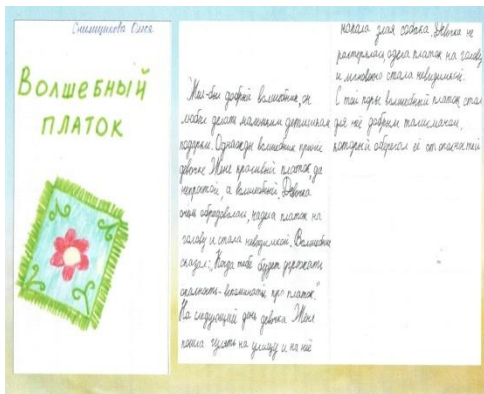 Снимщикова Олеся
ВОЛШЕБНЫЙ
ПЛАТОК
Жил-был добрый волшебник, он
любил делать маленьким детишкам
подарки. Однажды волшебник принёс
девочке Жене красивый платок, да
непростой, а волшебный. Девочка
очень обрадовалась, надела платок на
голову и стала невидимкой. Волшебник
сказал: "Когда тебе будет угрожать
опасность - вспоминай про платок."
На следующий день девочка Женя
пошла гулять на улицу и на неё
напала злая собака. Девочка не
растерялась одела платок на голову
и мгновенно стала невидимкой.
С той поры волшебный платок стал
для неё добрым талисманом,
который оберегал её от опасностей